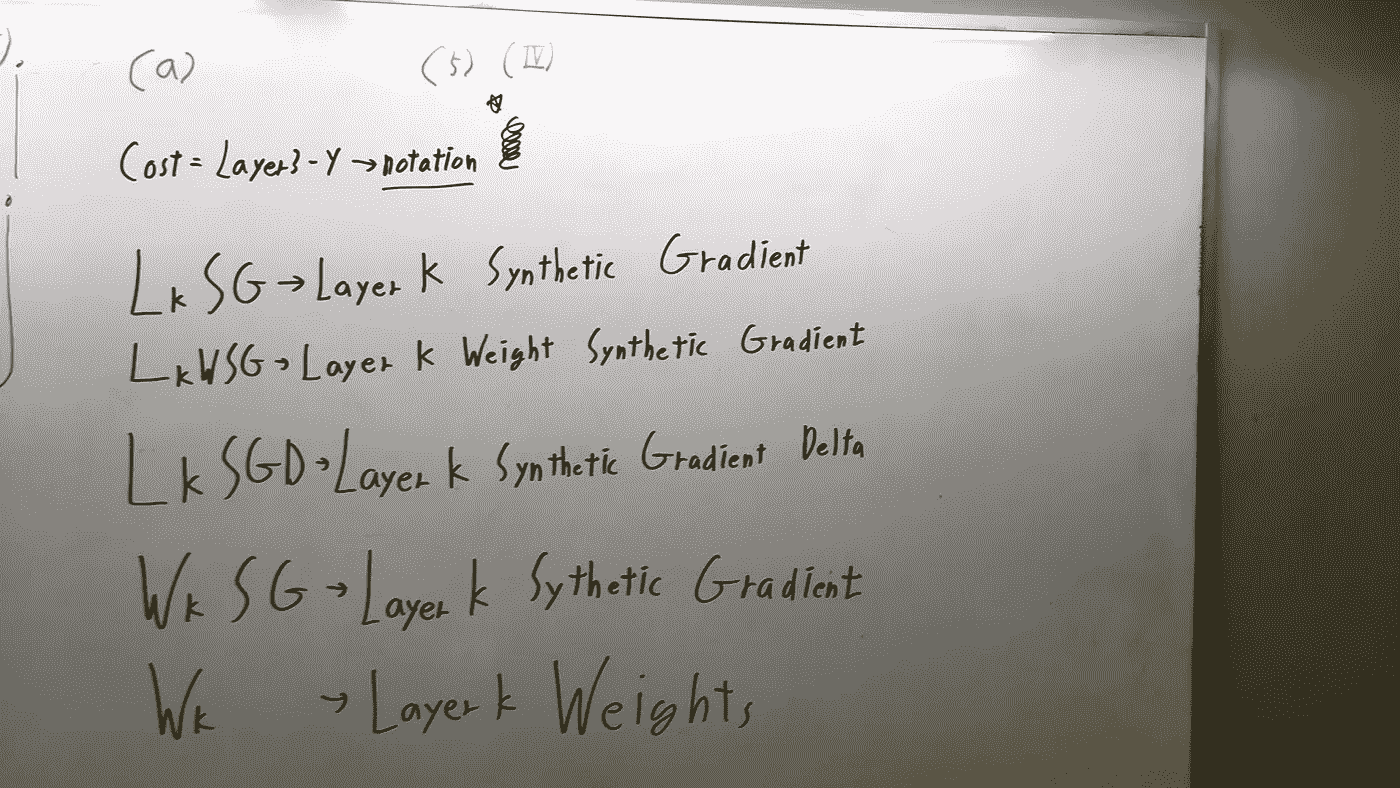 (a) (5) (IV)
Cost = Layer3 - Y → notation
Lk SG → Layer k Synthetic Gradient
LkWSG → Layer k Weight Synthetic Gradient
Lk SGD → Layer k Synthetic Gradient Delta
Wk SG → Layer k Sythetic Gradient
Wk → Layer k Weights